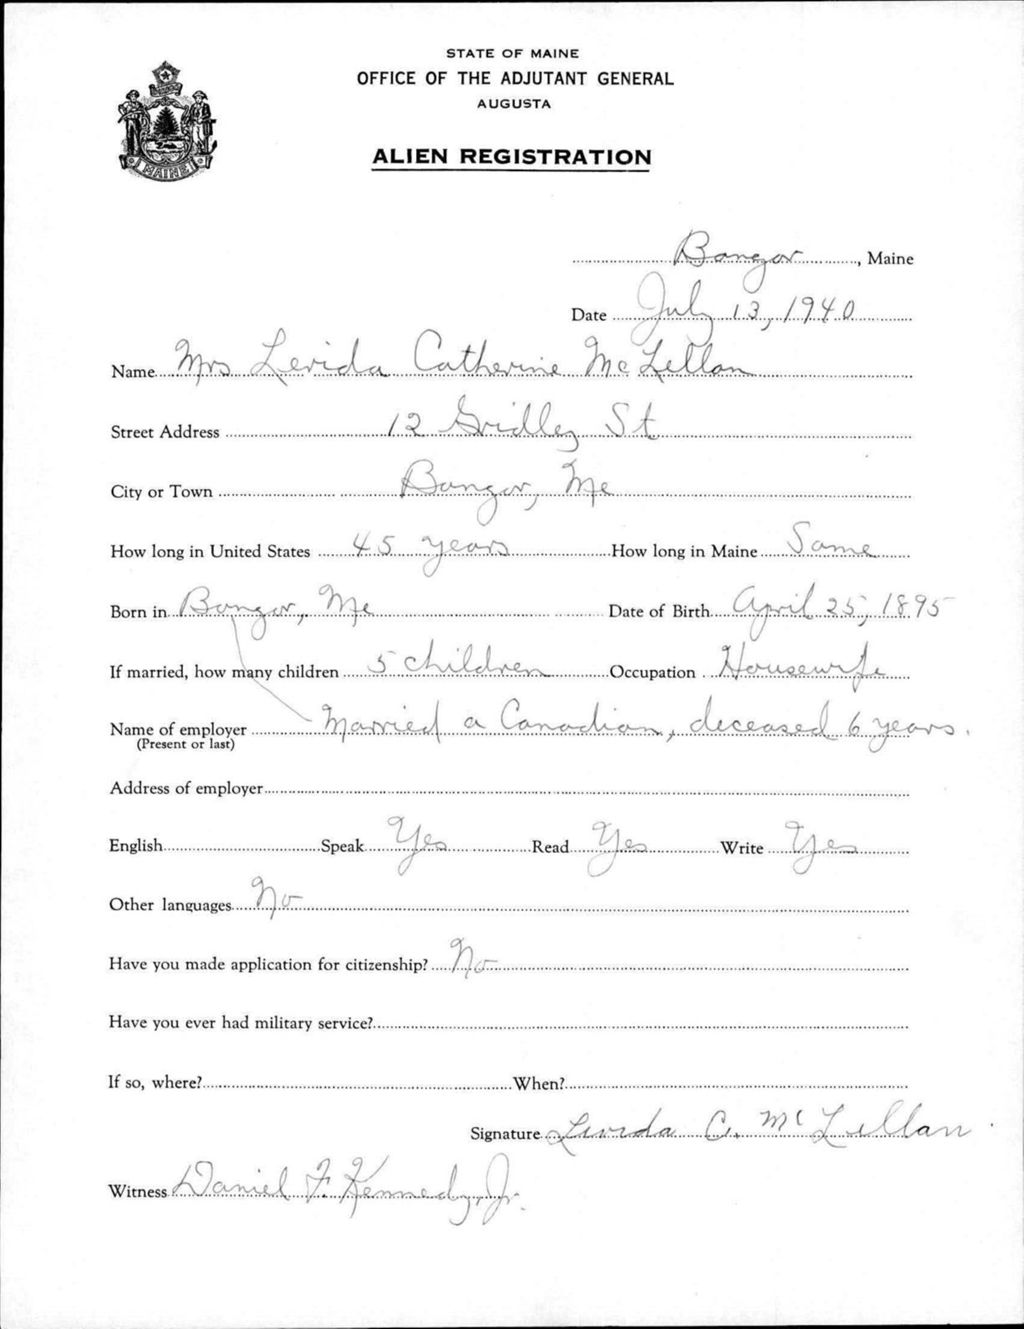 STATE OF MAINE
OFFICE OF THE ADJUTANT GENERAL
AUGUSTA
ALIEN REGISTRATION
MAINE
Bangor, Maine
Date July 13, 1940
Name Mrs Levida Catherine McLellan
Street Address 12 Gridley St
City or Town Bangor, Me
How long in United States 45 years How long in Maine Same
Born in Bangor, Me Date of Birth April 25, 1895
If married, how many children 5 children Occupation Housewife
Name of employer Married a Canadian, deceased 6 years.
(Present or last)
Address of employer
English Speak Yes Read Yes Write Yes
Other languages No
Have you made application for citizenship? No
Have you ever had military service?
If so, where? When?
Signature Levida C. McLellan
Witness Daniel F. Kennedy, Jr.